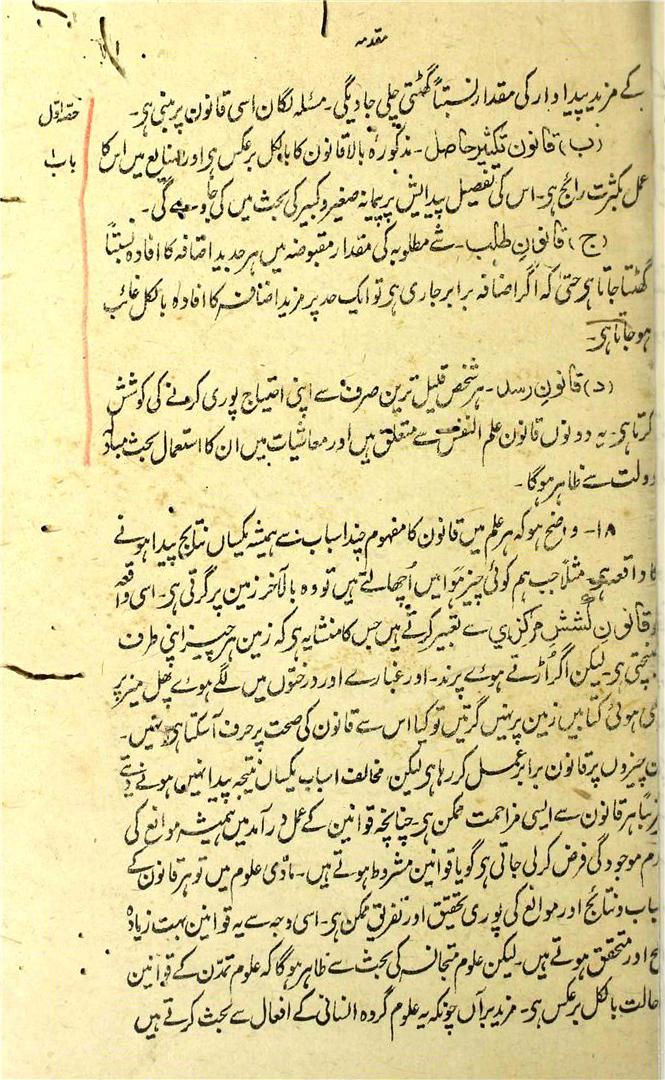 مقدمہ
کے مزید پیداوار کی مقدار نسبتاً گھٹتی چلی جاویگی۔ مسئلہ لگان اسی قانون پر مبنی ہی۔
حصہ اول
باب ۱
(ب) قانون تکثیر حاصل۔ مذکورہ بالا قانون کا بالکل برعکس ہی اور صنایع میں اس کا
عمل بکثرت رائج ہی۔ اس کی تفصیل پیدایش بر پیمانہ صغیر و کبیر کی بحث میں کی جاوے گی۔
(ج) قانون طلب۔ شے مطلوبہ کی مقدار مقبوضہ میں ہر جدید اضافہ کا افادہ نسبتاً
گھٹتا جاتا ہی حتیٰ کہ اگر اضافہ برابر جاری ہی تو ایک حد پر مزید اضافہ کا افادہ بالکل غائب
ہو جاتا ہی۔
(د) قانون رسد۔ ہر شخص قلیل ترین صرف سے اپنی احتیاج پوری کرنے کی کوشش
کرتا ہی۔ یہ دونوں قانون علم النفس سے متعلق ہیں اور معاشیات میں ان کا استعمال بحث مبادلہ
دولت سے ظاہر ہوگا۔
۱۸۔ واضح ہو کہ ہر علم میں قانون کا مفہوم چند اسباب سے ہمیشہ یکساں نتایج پیدا ہونے
کا واقعہ ہی۔ مثلاً جب ہم کوئی چیز ہوا میں اُچھالتے ہیں تو وہ بالآخر زمین پر گرتی ہی۔ اسی واقعہ
کو قانون کشش مرکزی سے تعبیر کرتے ہیں جس کا منشا یہ ہی کہ زمین ہر چیز اپنی طرف
کھینچتی ہی۔ لیکن اگر اُڑتے ہوے پرند۔ اور غبارے اور درختوں میں لگے ہوے پھل میز پر
ہوئی کتابیں زمین پر نہیں گرتیں تو کیا اس سے قانون کی صحت پر حرف آسکتا ہی نہیں۔
ان چیزوں پر قانون برابر عمل کر رہا ہی لیکن مخالف اسباب یکساں نتیجہ پیدا نہیں ہونے دیتے
تقریباً ہر قانون سے ایسی مزاحمت ممکن ہی۔ چنانچہ قوانین کے عمل درآمد میں ہمیشہ موانع کی
عدم موجودگی فرض کرلی جاتی ہی گویا قوانین مشروط ہوتے ہیں۔ مادّی علوم میں تو ہر قانون کے
اسباب و نتائج اور موانع کی پوری تحقیق اور تفریق ممکن ہی۔ اسی وجہ سے یہ قوانین بہت زیادہ
اور متحقق ہوتے ہیں۔ لیکن علوم متجانسہ کی بحث سے ظاہر ہوگا کہ علوم تمدّن کے قوانین
حالت بالکل برعکس ہی۔ مزید برآں چونکہ یہ علوم گروہ انسانی کے افعال سے بحث کرتے ہیں